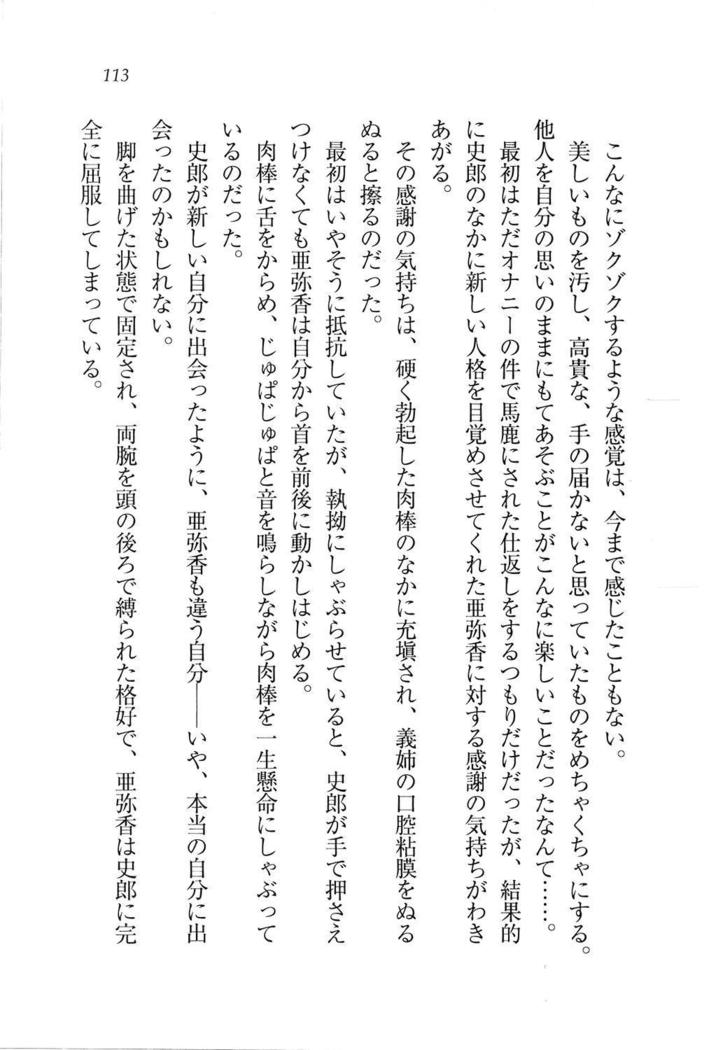 113
こんなにゾクゾクするような感覚は、今まで感じたこともない。
美しいものを汚し、高貴な、手の届かないと思っていたものをめちゃくちゃにする。
他人を自分の思いのままにもてあそぶことがこんなに楽しいことだったなんて……。
最初はただオナニーの件で馬鹿にされた仕返しをするつもりだけだったが、結果的
に史郎のなかに新しい人格を目覚めさせてくれた亜弥香に対する感謝の気持ちがわき
あがる。
その感謝の気持ちは、硬く勃起した肉棒のなかに充塡され、義姉の口腔粘膜をぬる
ぬると擦るのだった。
最初はいやそうに抵抗していたが、執拗にしゃぶらせていると、史郎が手で押さえ
つけなくても亜弥香は自分から首を前後に動かしはじめる。
肉棒に舌をからめ、じゅぱじゅぱと音を鳴らしながら肉棒を一生懸命にしゃぶって
いるのだった。
史郎が新しい自分に出会ったように、亜弥香も違う自分――いや、本当の自分に出
会ったのかもしれない。
脚を曲げた状態で固定され、両腕を頭の後ろで縛られた格好で、亜弥香は史郎に完
全に屈服してしまっている。